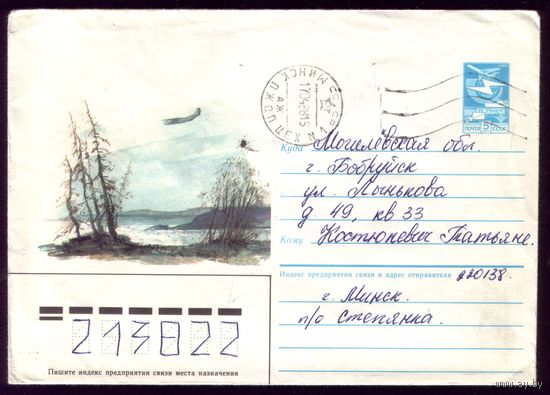 МИНСК ПЖДП
ЦЕХ N
170488 15
ПОЧТА 5К СССР
Куда Могилевская обл.
г. Бобруйск
ул. Лынькова
д 49, кв 33
Кому Костюкевич Татьяне.
Индекс предприятия связи и адрес отправителя 220138.
г. Минск.
п/о степянка.
213822
Пишите индекс предприятия связи места назначения